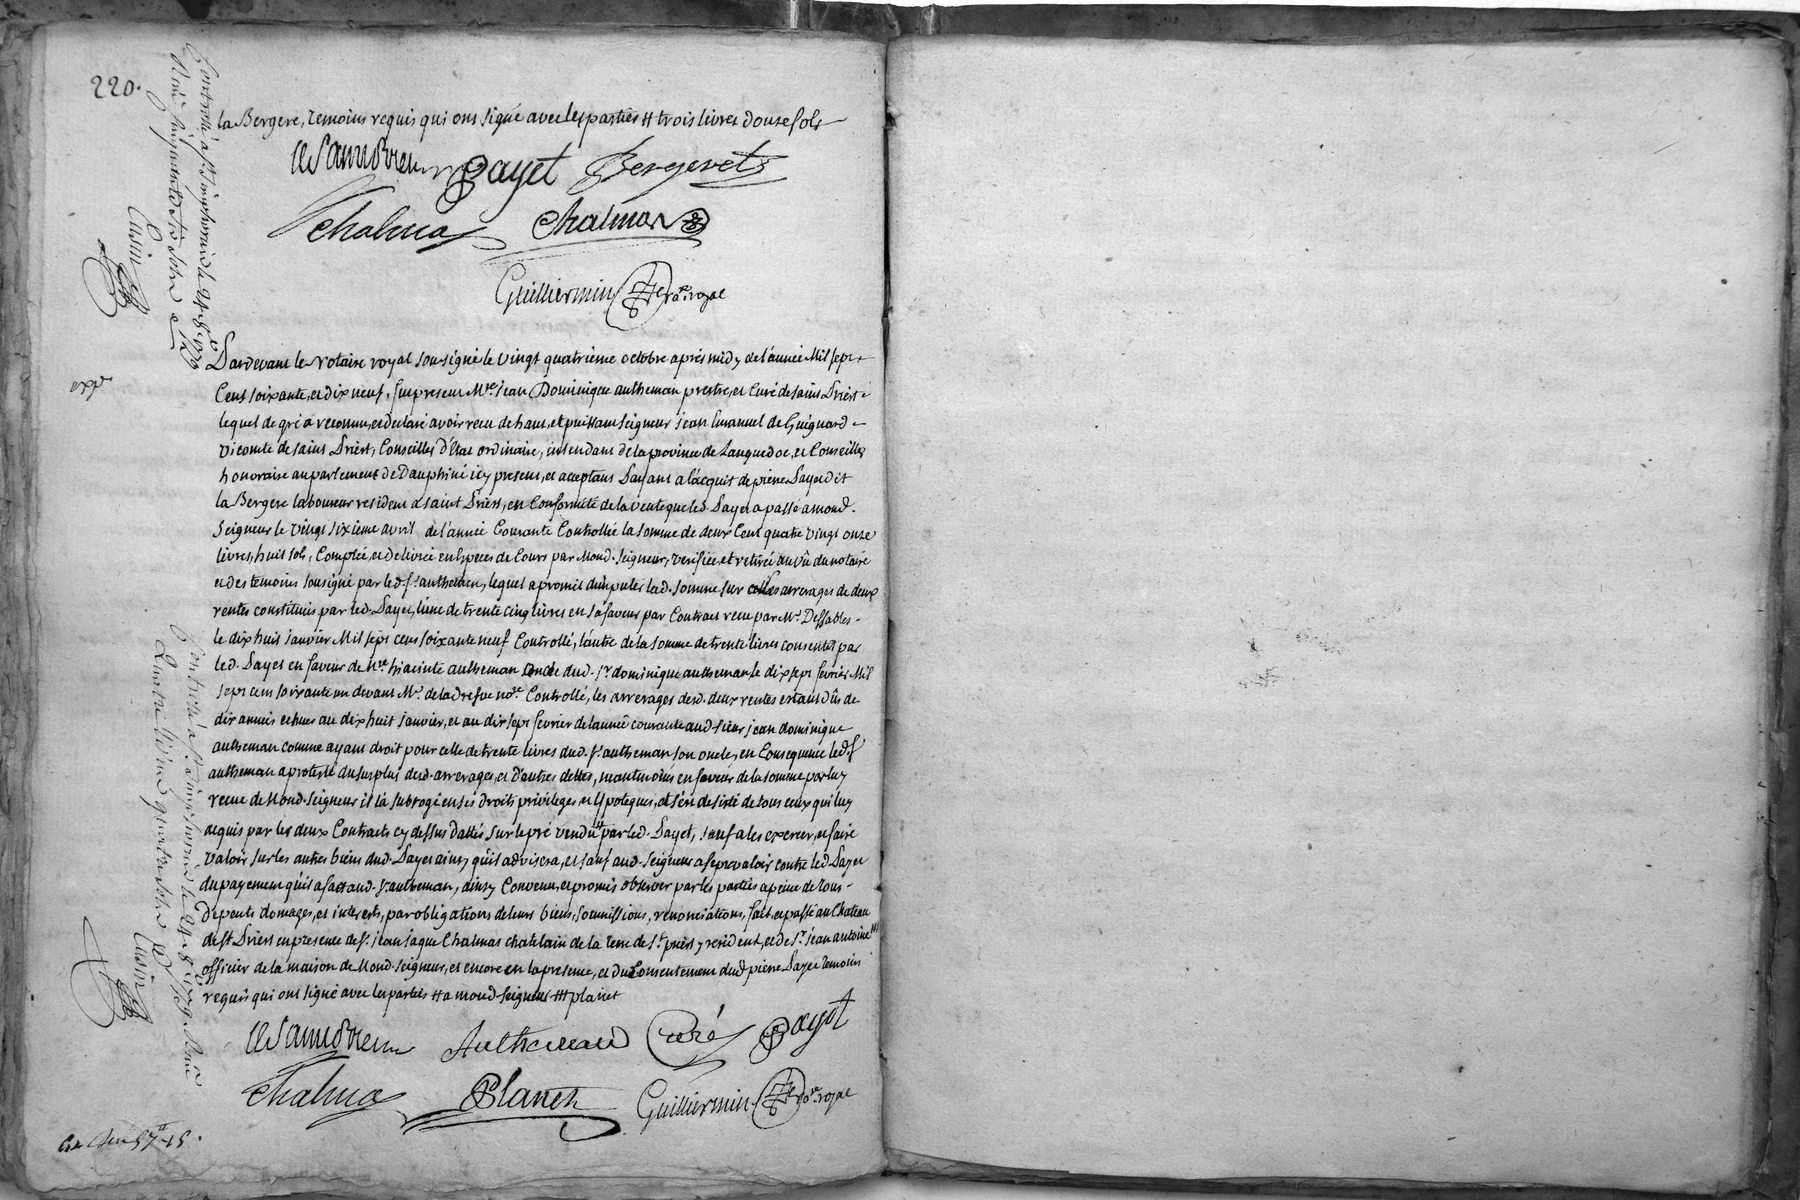 220.
la Bergere, temoins requis qui ont signé avec les parties # trois livres douse sols
Payet Bergeret
Chalmas Chalmas
Guilliermin no.re royal
Pardevant le Notaire royal sousigné le vingt quatrieme octobre aprés midy de l'année Mil sept
Cent soixante, et dix neuf, fut present M.re jean Dominique autheman prestre, et Curé de saint Priest
lequel de gré a reconnu, et declaré avoir receu de haut, et puissant seigneur jean Emanuel de Guignard
vicomte de saint Priest, Conseiller d'Etat ordinaire, intendant de la province de Languedoc, et Conseiller
honoraire au parlement de Dauphiné icy present, et acceptant Payant a l'acquit de pierre Payet dit
la Bergere laboureur resident a saint Priest, en Conformité de la vente que led. Payet a passé a mond.
Seigneur le vingt sixieme avril de l'année Courante Controllée la somme de deux Cent quatre vingt onze
livres, huit sols, Comptée, et delivrée en Especes de Cours par Mond. Seigneur, verifiée, et retirée au vû du notaire
et des temoins sousigné par led. s.r autheman, lequel a promit d'imputer lad. somme sur les arrerages de deux
rentes constituées par led. Payet, l'une de trente cinq livres en sa faveur par Contract receu par M.e Dessables
le dix huit janvier Mil sept cent soixante neuf Controllé, l'autre de la somme de trente livres consentie par
led. Payet en faveur de M.re hiacinte autheman oncle dud. s.r dominique autheman le dix sept fevrier Mil
sept cent soixante un devant M.e de la no.re Controllé, les arrerages desd. deux rentes estant dûs de
dix années echues au dix huit janvier, et au dix sept fevrier de l'année courante aud. sieur jean dominique
autheman comme ayant droit pour celle de trente livres dud. s.r autheman son oncle, en Consequence led. s.r
autheman a protesté du surplus desd. arrerages, et d'autres dettes, neantmoins en faveur de la somme par luy
receue de Mond. seigneur il l'a subrogé en ses droits privileges, et Hypoteques, et s'en desisté de tous ceux qui luy
acquis par les deux Contracts cy dessus dattés sur le pré vendu # par led. Payet, sauf a les exercer, et faire
valoir sur les autres biens dud. Payet ainsy qu'il advisera, et sauf aud. seigneur a se prevaloir contre led. Payet
du payement qu'il a fait aud. s.r autheman, ainsy Convenu, et promis observer par les parties a peine de tous
depents domages, et interests, par obligations de leurs biens, soumissions, renonciations, fait, et passé au Chateau
de S.t Priest en presence de s.r jean jaque Chalmas chatelain de la Terre de S.t priest y resident, et de s.r jean antoine ###
officier de la maison de Mond. seigneur, et encore en la presence, et du Consentement dud. pierre Payet temoins
requis qui ont signé avec les parties # a mond. seigneur ### planet
Autheman Curé Payet
Chalmas Planet Guilliermin no.re royal